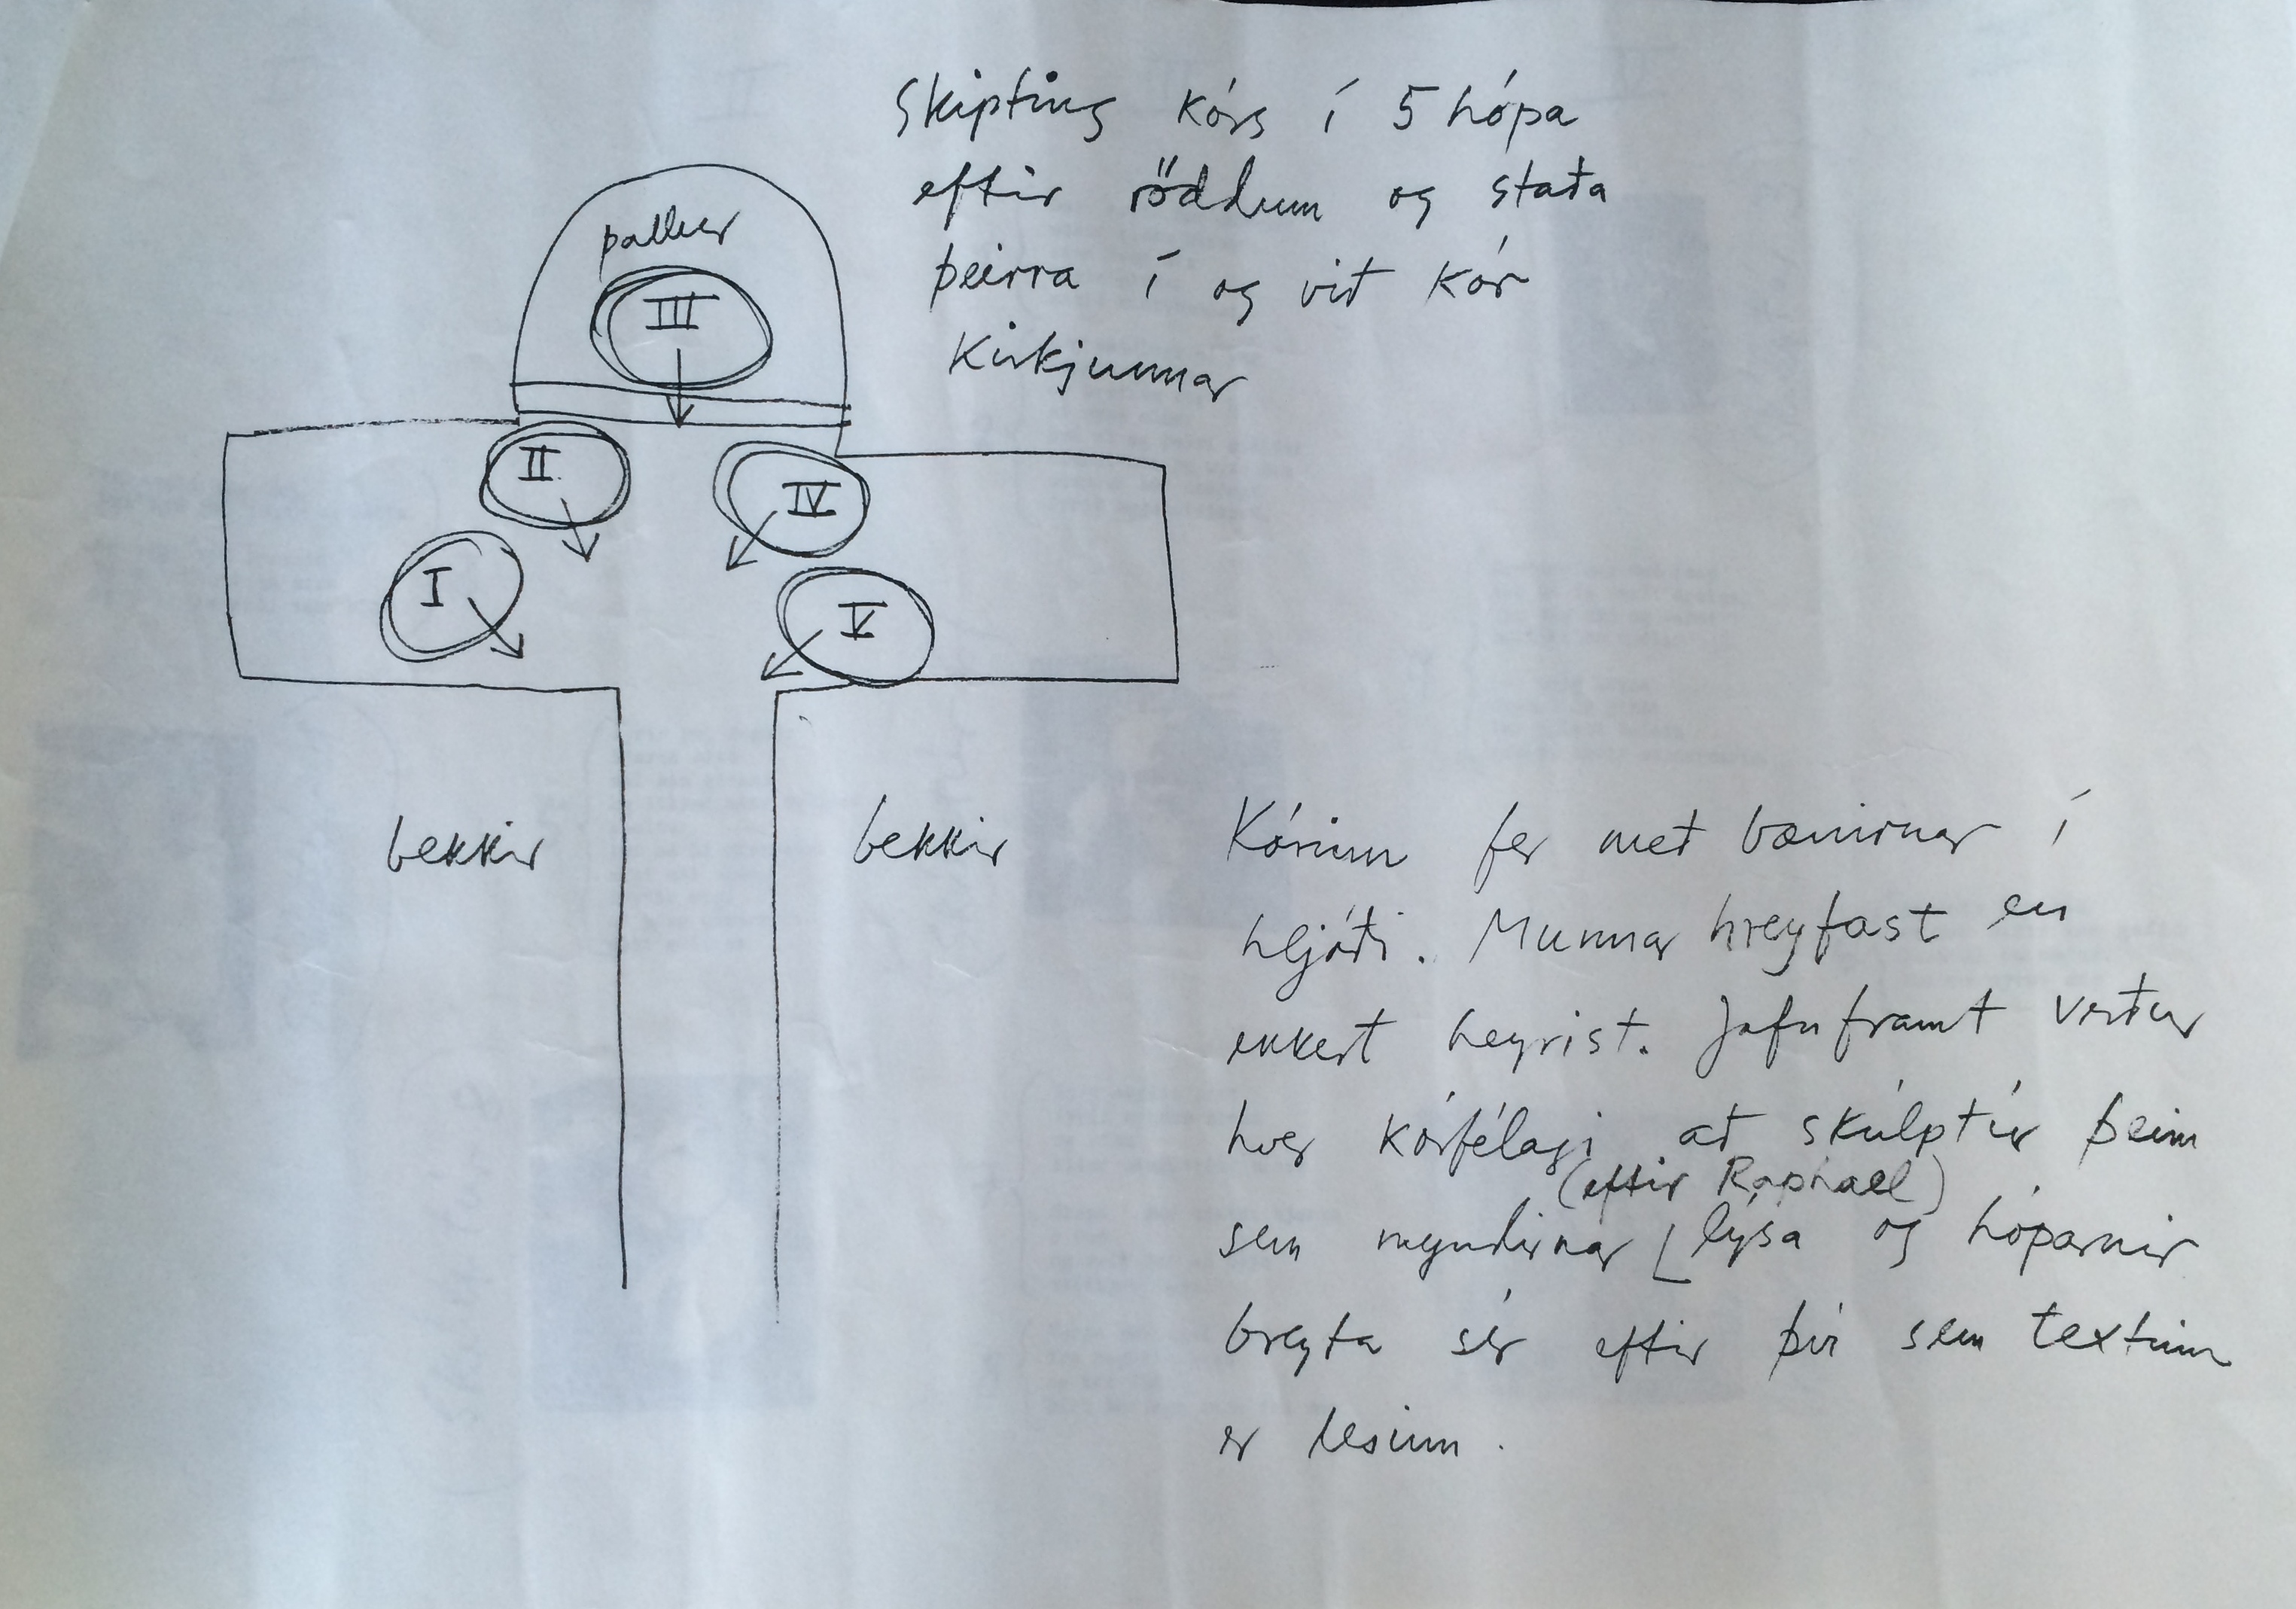 Skipting kórs í 5 hópa
eftir röddum og staða
þeirra í og við kór
kirkjunnar
pallur
III
II
IV
I
V
bekkir
bekkir
Kórinn fer með bænirnar í
hljóði. Munnar hreyfast en
ekkert heyrist. Jafnframt verður
hver kórfélagi að skúlptúr þeim
(eftir Raphael)
sem myndirnar lýsa og hóparnir
breyta sér eftir því sem textinn
er lesinn.